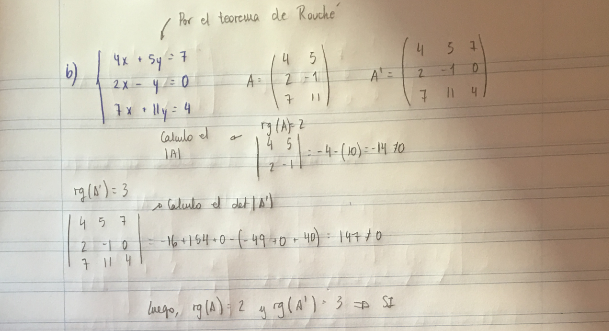 Por el teorema de Rouché
b) { 4x + 5y = 7
2x - y = 0
7x + 11y = 4
A = ( 4 5
2 -1
7 11 )
A' = ( 4 5 7
2 -1 0
7 11 4 )
rg(A)=2
Calculo el |A|
| 4 5
2 -1 | = -4-(10) = -14 ≠ 0
rg(A') = 3
Calculo el det |A'|
| 4 5 7
2 -1 0
7 11 4 | = -16+154+0-(-49+0+40) = 147 ≠ 0
Luego, rg(A) = 2 y rg(A') = 3 ⇒ SI